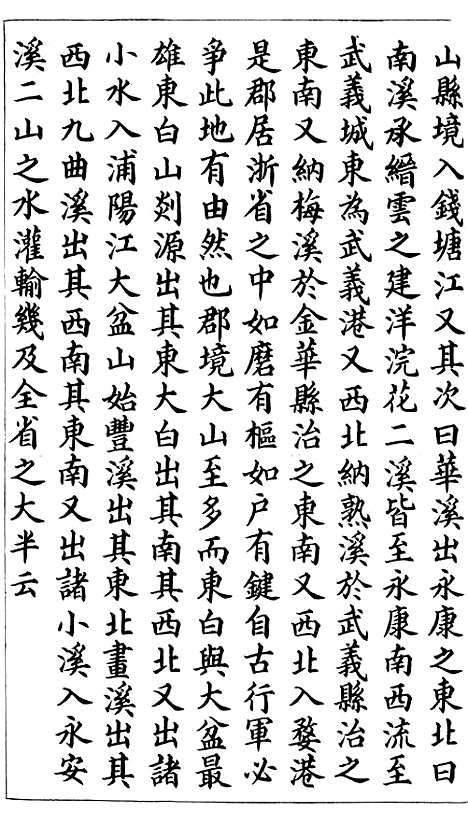 山縣境入錢塘江又其次曰華溪出永康之東北曰
南溪承縉雲之建洋浣花二溪皆至永康南西流至
武義城東為武義港又西北納熟溪於武義縣治之
東南又納梅溪於金華縣治之東南又西北入婺港
是郡居浙省之中如磨有樞如户有鍵自古行軍必
爭此地有由然也郡境大山至多而東白與大盆最
雄東白山剡源出其東大白出其南其西北又出諸
小水入浦陽江大盆山始豐溪出其東北畫溪出其
西北九曲溪出其西南其東南又出諸小溪入永安
溪二山之水灌輸幾及全省之大半云